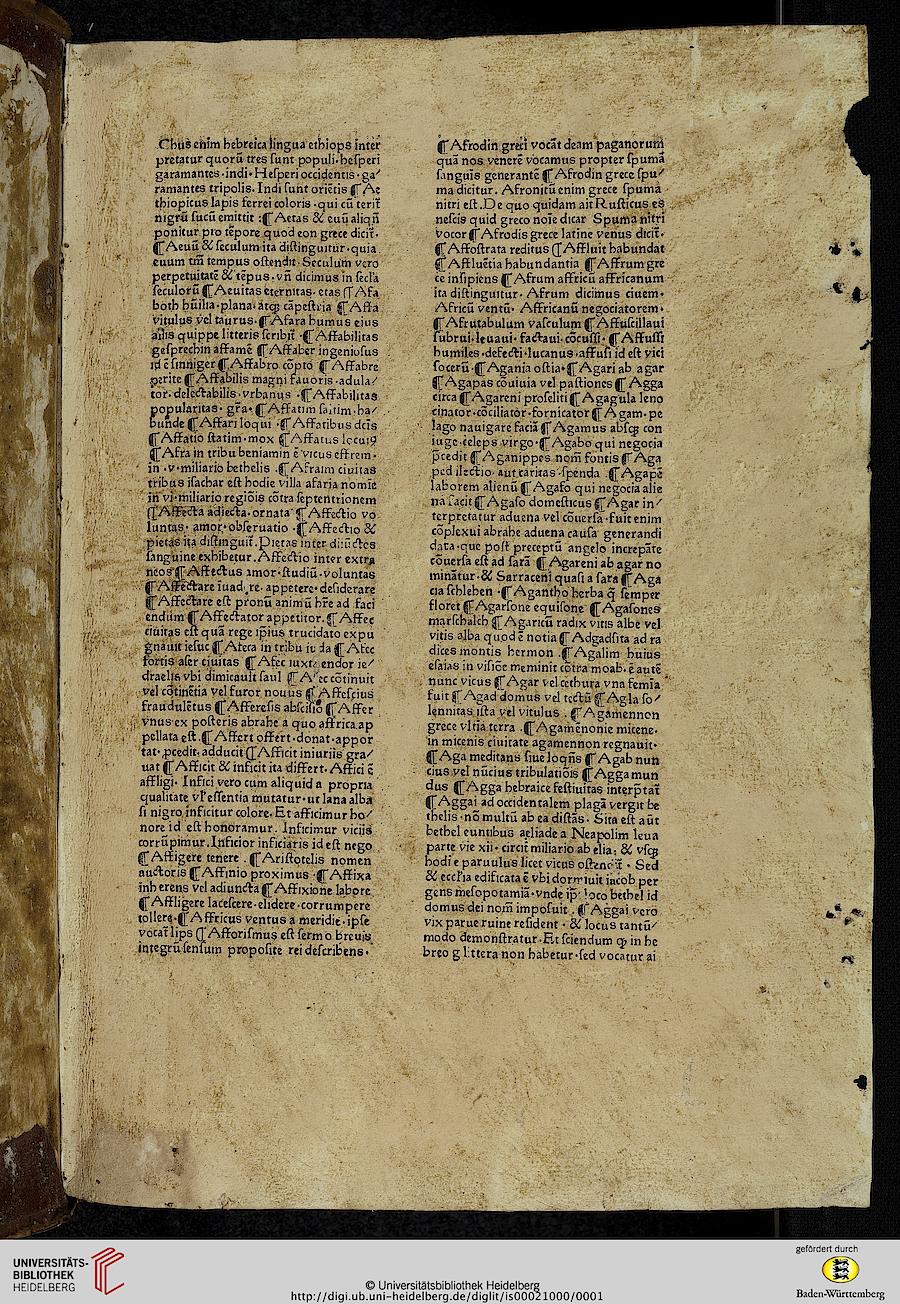 Chus enim hebreica lingua ethiops inter
pretatur quorū tres ſunt populi·heſperi
garamantes·indi·Heſperi occidentis·ga/
ramantes tripolis·Indi ſunt oriētis ¶ Ae
thiopicus lapis ferrei coloris·qui cū terit̄
nigrū ſucū emittit :¶ Aetas & euū aliqñ
ponitur pro tēpore quod eon grece dicit̄·
¶ Aeuū & ſeculum ita diſtinguitur·quia
euum tm̄ tempus oſtendit·Seculum vero
perpetuitatē & tēpus·vñ dicimus in ſecl'a
ſeculorū ¶ Aeuitas eternitas·etas ¶ Afa
both hūilia·plana·atqꝫ cāpeſtria ¶ Affa
vitulus vel taurus·¶ Afara humus eius
quippe litteris ſcribit̄ ·¶ Affabilitas
geſprechin affamē ¶ Affaber ingenioſus
id ē ſinniger ¶ Affabro cōpto ¶ Affabre
perite ¶ Affabilis magni fauoris·adula/
tor·delectabilis·vrbanus ·¶ Affabilitas
popularitas·gr̄a·¶ Affatim ſatim·ha/
bunde ¶ Affari loqui ·¶ Affatibus dc̄is
¶ Affatio ſtatim·mox ¶ Affatus locutꝰ
¶ Afra in tribu beniamin ē vicus eſt rem·
in ·v·miliario bethelis ·¶ Afraim ciuitas
tribus iſachar eſt hodie villa afaria nomīe
in vi·miliario regiōis cōtra ſeptentrionem
¶ Affecta adiecta·ornata ¶ Affectio vo
luntas·amor·obſeruatio ·¶ Affectio &
pietas ita diſtinguit̄·Pietas inter diūctos
ſanguine exhibetur·Affectio inter extra
neos ¶ Affectus amor·ſtudiū·voluntas
¶ Affectare re·appetere·deſiderare
¶ Affectare eſt pronū animū hr̄e ad faci
endum ¶ Affectator appetitor·¶ Affec
ciuitas eſt quā rege ip̄ius trucidato expu
gnauit ieſuc ¶ Afeca in tribu iuda ¶ Afec
fortis aſer ciuitas ¶ Afec iuxta endor ie/
draelis vbi dimicauit ſaul ¶ Afec cōtinuit
vel cōtinētia vel furor nouus ¶ Affeſcius
fraudulētus ¶ Affereſis abſciſio ¶ Affer
vnus ex poſteris abrahe a quo affrica ap
pellata eſt ·¶ Affert offert·donat·appor
tat·p̄cedit·adducit ¶ Afficit iniuriis gra/
uat ¶ Afficit & inficit ita differt·Affici ē
affligi·Infici vero cum aliquid a propria
qualitate vl' eſſentia mutatur·ut lana alba
ſi nigro inficitur colore·Et afficimur ho/
nore id eſt honoramur·Inficimur viciis
corrūpimur·Inficior inficiaris id eſt nego
¶ Affigere tenere ·¶ Ariſtotelis nomen
auctoris ¶ Affinio proximus ·¶ Affixa
inherens vel adiuncta ¶ Affixione labore
¶ Affligere laceſcere·elidere·corrumpere
tollere·¶ Affricus ventus a meridie·ipſe
vocat̄ lips ¶ Afforiſmus eſt ſermo breuis
integrū ſenſum propoſite rei deſcribens·
¶ Afrodin greci vocāt deam paganorum
quā nos venerē vocamus propter ſpumā
ſanguis generantē ¶ Afrodin grece ſpu/
ma dicitur·Afronitū enim grece ſpuma
nitri eſt·De quo quidam ait Ruſticus es
neſcis quid greco noīe dicar Spuma nitri
vocor ¶ Afrodis grece latine venus dicit̄·
¶ Affoſtrata reditus ¶ Affluit habundat
¶ Affluētia habundantia ¶ Affrum gre
ce inſipiens ¶ Afrum affricū affricanum
ita diſtinguitur·Afrum dicimus ciuem·
Africū ventū·Affricanū negociatorem·
¶ Afrutabulum vaſculum ¶ Affuſcillaui
ſubrui·leuaui·factaui·cōcuſſi·¶ Affuſſi
humiles·defecti·lucanus·affuſi id eſt vici
ſocerū ¶ Agania oſtia·¶ Agari ab agar
¶ Agapas cōuiuia vel paſtiones ¶ Agga
circa ¶ Agareni proſeliti ¶ Agagula leno
cinator·cōciliator·fornicator ¶ Agam·pe
lago nauigare faciā ¶ Agamus abſqꝫ con
iuge·celeps virgo·¶ Agabo qui negocia
p̄cedit ¶ Aganippes nom̄ fontis ¶ Aga
ped ilectio·aut caritas·ſpenda ·¶ Agapē
laborem alienū ¶ Agaſo qui negocia alie
na facit ¶ Agaſo domeſticus ¶ Agar in/
terpretatur aduena vel cōuerſa·fuit enim
cōplexui abrahe aduena cauſa generandi
data·que poſt preceptū angelo increpāte
cōuerſa eſt ad ſarā ¶ Agareni ab agar no
minātur·& Sarraceni quaſi a ſara ¶ Aga
cia ſchleben ·¶ Agantho herba q̄ ſemper
floret ¶ Agarſone equiſone ¶ Agaſones
marſchalch ¶ Agaricū radix vitis albe vel
vitis alba quod ē notia ¶ Adgadſita ad ra
dices montis hermon ·¶ Agalim huius
eſaias in viſiōe meminit cōtra moab·ē autē
nunc vicus ¶ Agar vel cethura vna femīa
fuit ¶ Agad domus vel tectū ¶ Agla ſo/
lennitas iſta vel vitulus ·¶ Agamennon
grece vltīa terra ·¶ Agamenonie micene·
in micenis ciuitate agamennon regnauit·
¶ Aga meditans ſiue loqñs ¶ Agab nun
cius vel nūcius tribulatiōis ¶ Agga mun
dus ¶ Agga hebraice feſtiuitas interp̄tat̄
¶ Aggai ad occidentalem plagā vergit be
thelis·nō multū ab ea diſtās·Sita eſt aūt
bethel euntibus aeliade a Neapolim leua
parte vie xii·circit̄ miliario ab elia·& vſqꝫ
hodie paruulus licet vicus oſtendit̄ · Sed
& eccl'ia edificata ē vbi dormiuit iacob per
gens meſopotamiā·vnde ip̄i loco bethel id
domus dei nom̄ impoſuit ·¶ Aggai vero
vix parue ruine reſident · & locus tantū/
modo demonſtratur·Et ſciendum ꝙ in he
breo g littera non habetur·ſed vocatur ai
UNIVERSITÄTS-
BIBLIOTHEK
HEIDELBERG
© Universitätsbibliothek Heidelberg
http://digi.ub.uni-heidelberg.de/diglit/is00021000/0001
gefördert durch
Baden-Württemberg